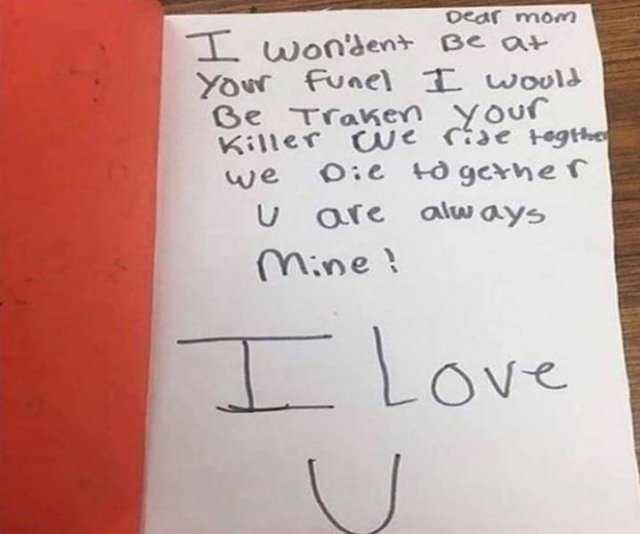 Dear mom
I won'dent Be at
Your Funel I would
Be Traken your
Killer We ride togther
we Die together
U are always
Mine!
I Love
U